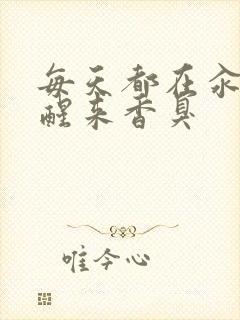 每天都在汆
醒来香臭
唯今心